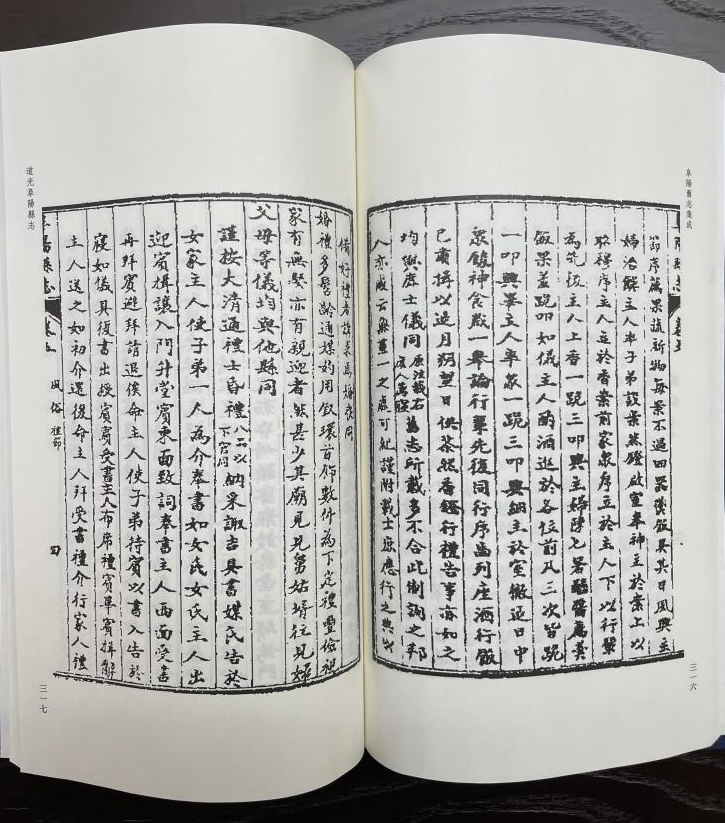 阜陽舊志集成
節序薦果蔬新物每案不過四器羹飯具其日夙興主
婦治饌主人率子弟設案然燈啟室奉神主於案上以
昭穆序主人立於香案前家衆序立於主人下以行輩
為先後主人上香一跪三叩興主婦陳匕箸醯醬薦羹
飯果羞跪叩如儀主人酌酒進於各位前凡三次皆跪
一叩興畢主人率家一跪三叩興納主於室徹退日中
衆餕神食咸一舉論行輩先後同行序齒列座洒行飯
已肅揖以退月朔望日供茶然香鐙行禮告事亦如之
均與庶士儀同
舊志所載多不合此制詢之邦
人亦咸云無畫一之處可紀謹附載士庶應行之典以
三一六
道光阜陽縣志
備好禮者諏求焉
婚禮多髫齡通媒妁用釵環首飾數件為下定禮豐儉視
家有無娶亦有親迎者然甚少其廟見見舅姑壻往見婦
父母等儀均與他縣同
謹按大清通禮士昏禮八品以下官同納采諏吉具書媒氏告於
女家主人使子弟一人為介奉書如女氏女氏主人出
迎賓揖讓入門升堂賓東面致詞奉書主人西面受書
再拜賓避拜請退俟命主人使子弟待賓以書入告於
寢如儀具復書出授賓賓受書主人布席禮賓賓畢賓揖辭
主人送之如初介還復命主人拜受書禮介行家人禮
阜陽縣志
卷五
風俗
禮節
四
三一七